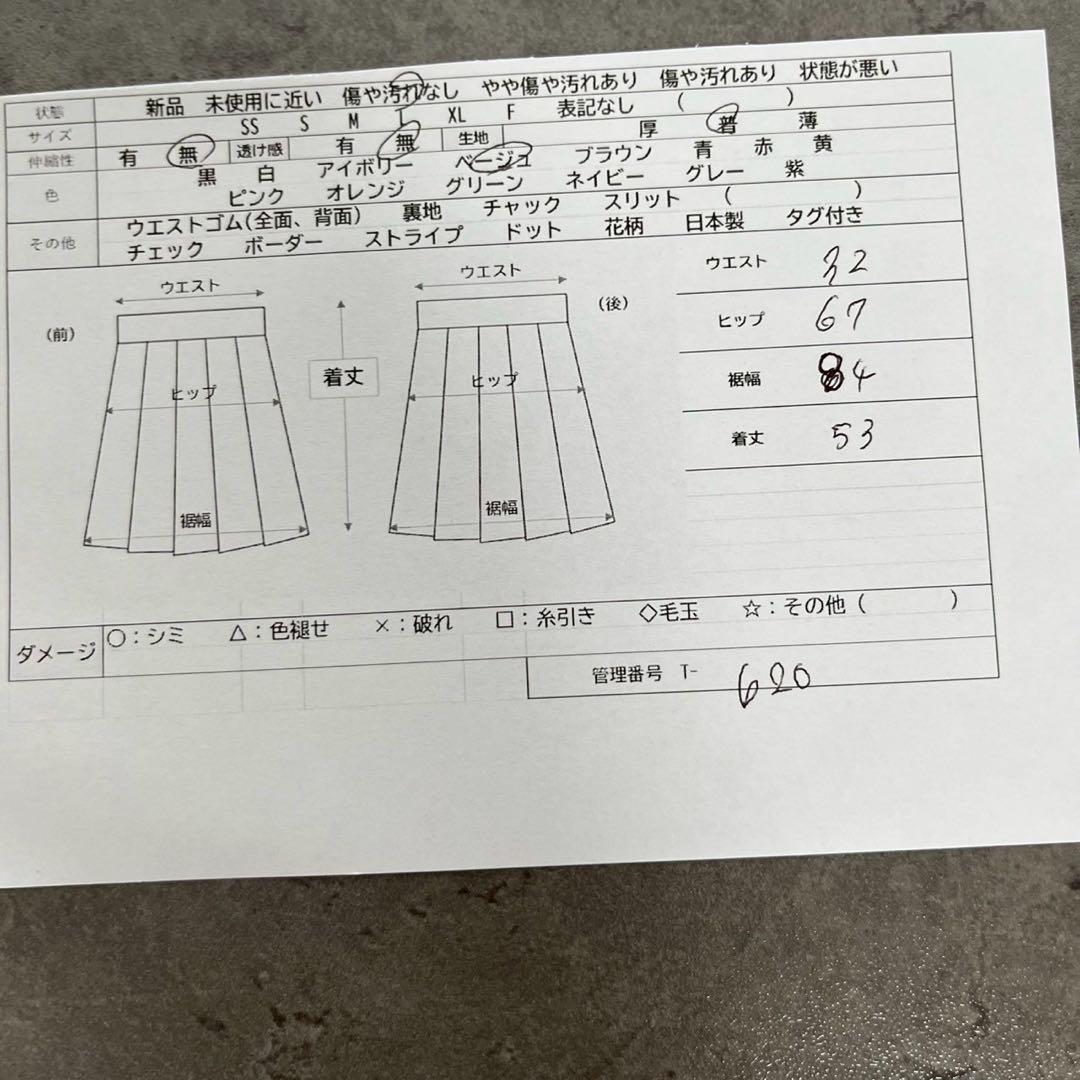 状態 新品 未使用に近い 傷や汚れなし やや傷や汚れあり 傷や汚れあり 状態が悪い
サイズ SS S M L XL F 表記なし ( )
伸縮性 有 無 透け感 有 無 生地 厚 普 薄
色 黒 白 アイボリー ベージュ ブラウン 青 赤 黄
ピンク オレンジ グリーン ネイビー グレー 紫
その他 ウエストゴム(全面、背面) 裏地 チャック スリット ( )
チェック ボーダー ストライプ ドット 花柄 日本製 タグ付き
ウエスト ウエスト ウエスト 32
(前) (後) ヒップ 67
ヒップ 着丈 ヒップ 裾幅 84
着丈 53
裾幅 裾幅
ダメージ ○:シミ △:色褪せ ×:破れ □:糸引き ◇毛玉 ☆:その他 ( )
管理番号 T- 620